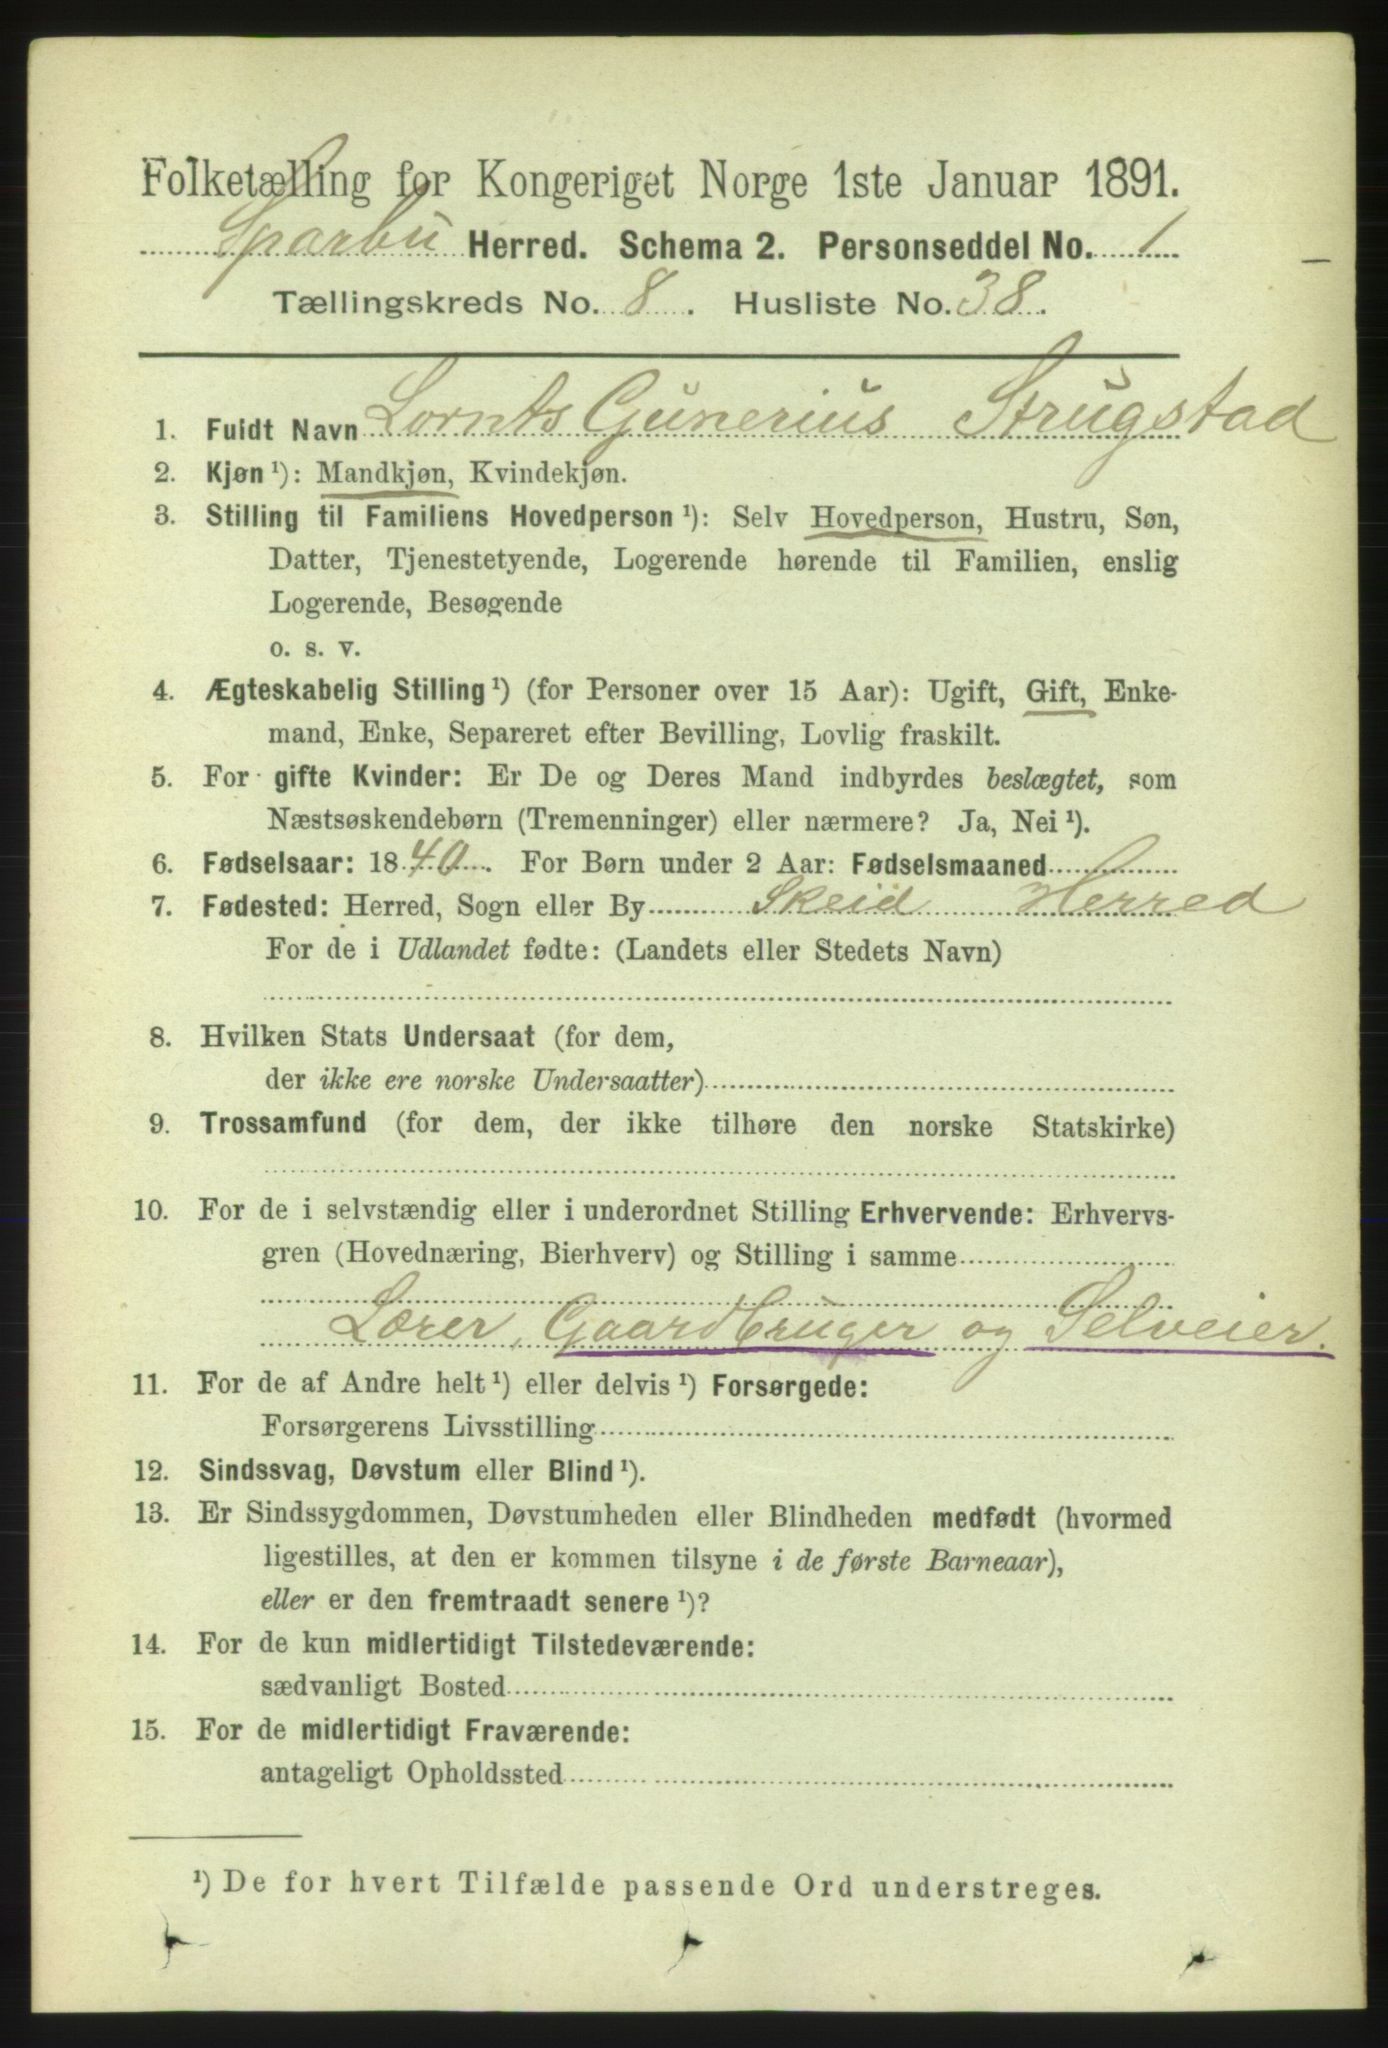 Folketælling for Kongeriget Norge 1ste Januar 1891.
Sparbu Herred. Schema 2. Personseddel No. 1
Tællingskreds No. 8. Husliste No. 38.
1. Fuldt Navn Lornts Gunerius Strugstad
2. Kjøn ¹): Mandkjøn, Kvindekjøn.
3. Stilling til Familiens Hovedperson ¹): Selv Hovedperson, Hustru, Søn,
Datter, Tjenestetyende, Logerende hørende til Familien, enslig
Logerende, Besøgende
o. s. v.
4. Ægteskabelig Stilling ¹) (for Personer over 15 Aar): Ugift, Gift, Enke-
mand, Enke, Separeret efter Bevilling, Lovlig fraskilt.
5. For gifte Kvinder: Er De og Deres Mand indbyrdes beslægtet, som
Næstsøskendebørn (Tremenninger) eller nærmere? Ja, Nei ¹).
6. Fødselsaar: 1840. For Børn under 2 Aar: Fødselsmaaned
7. Fødested: Herred, Sogn eller By Skeid Herred
For de i Udlandet fødte: (Landets eller Stedets Navn)
8. Hvilken Stats Undersaat (for dem,
der ikke ere norske Undersaatter)
9. Trossamfund (for dem, der ikke tilhøre den norske Statskirke)
10. For de i selvstændig eller i underordnet Stilling Erhvervende: Erhvervs-
gren (Hovednæring, Bierhverv) og Stilling i samme
Lærer, Gaardbruger og Selveier.
11. For de af Andre helt ¹) eller delvis ¹) Forsørgede:
Forsørgerens Livsstilling
12. Sindssvag, Døvstum eller Blind ¹).
13. Er Sindssygdommen, Døvstumheden eller Blindheden medfødt (hvormed
ligestilles, at den er kommen tilsyne i de første Barneaar),
eller er den fremtraadt senere ¹)?
14. For de kun midlertidigt Tilstedeværende:
sædvanligt Bosted
15. For de midlertidigt Fraværende:
antageligt Opholdssted
¹) De for hvert Tilfælde passende Ord understreges.